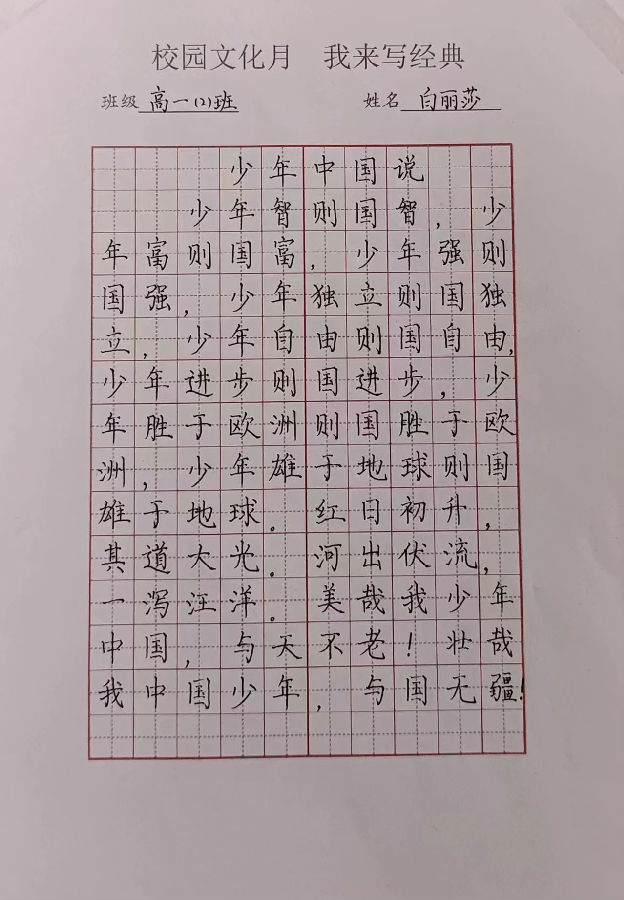 校园文化月 我来写经典
班级 高一(2)班 姓名 白丽莎
少年中国说
少年智则国智，少
年富则国富，少年强则
国强，少年独立则国独
立，少年自由则国自由，
少年进步则国进步，少
年胜于欧洲则国胜于欧
洲，少年雄于地球则国
雄于地球。红日初升，
其道大光。河出伏流，
一泻汪洋。美哉我少年
中国，与天不老！壮哉
我中国少年，与国无疆！